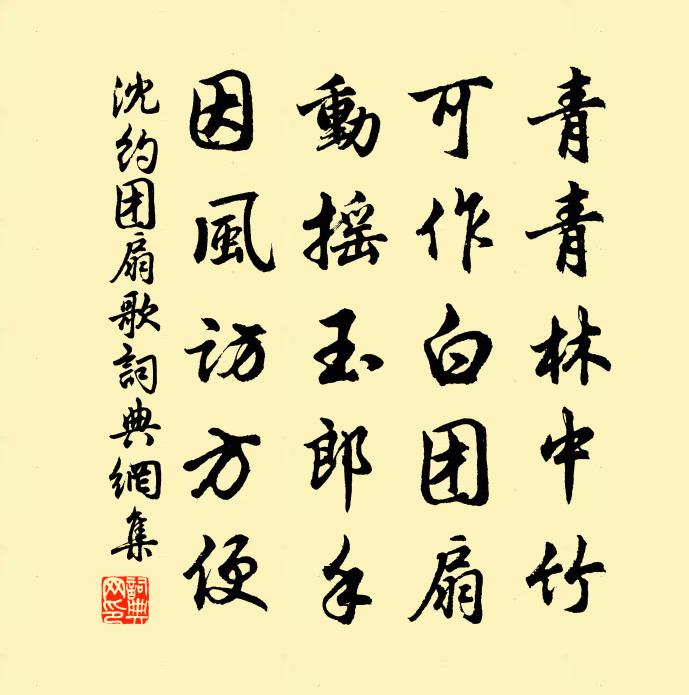 青青林中竹
可作白团扇
動摇玉郎手
因風访方便
沈约团扇歌詞典網集
詞典网印